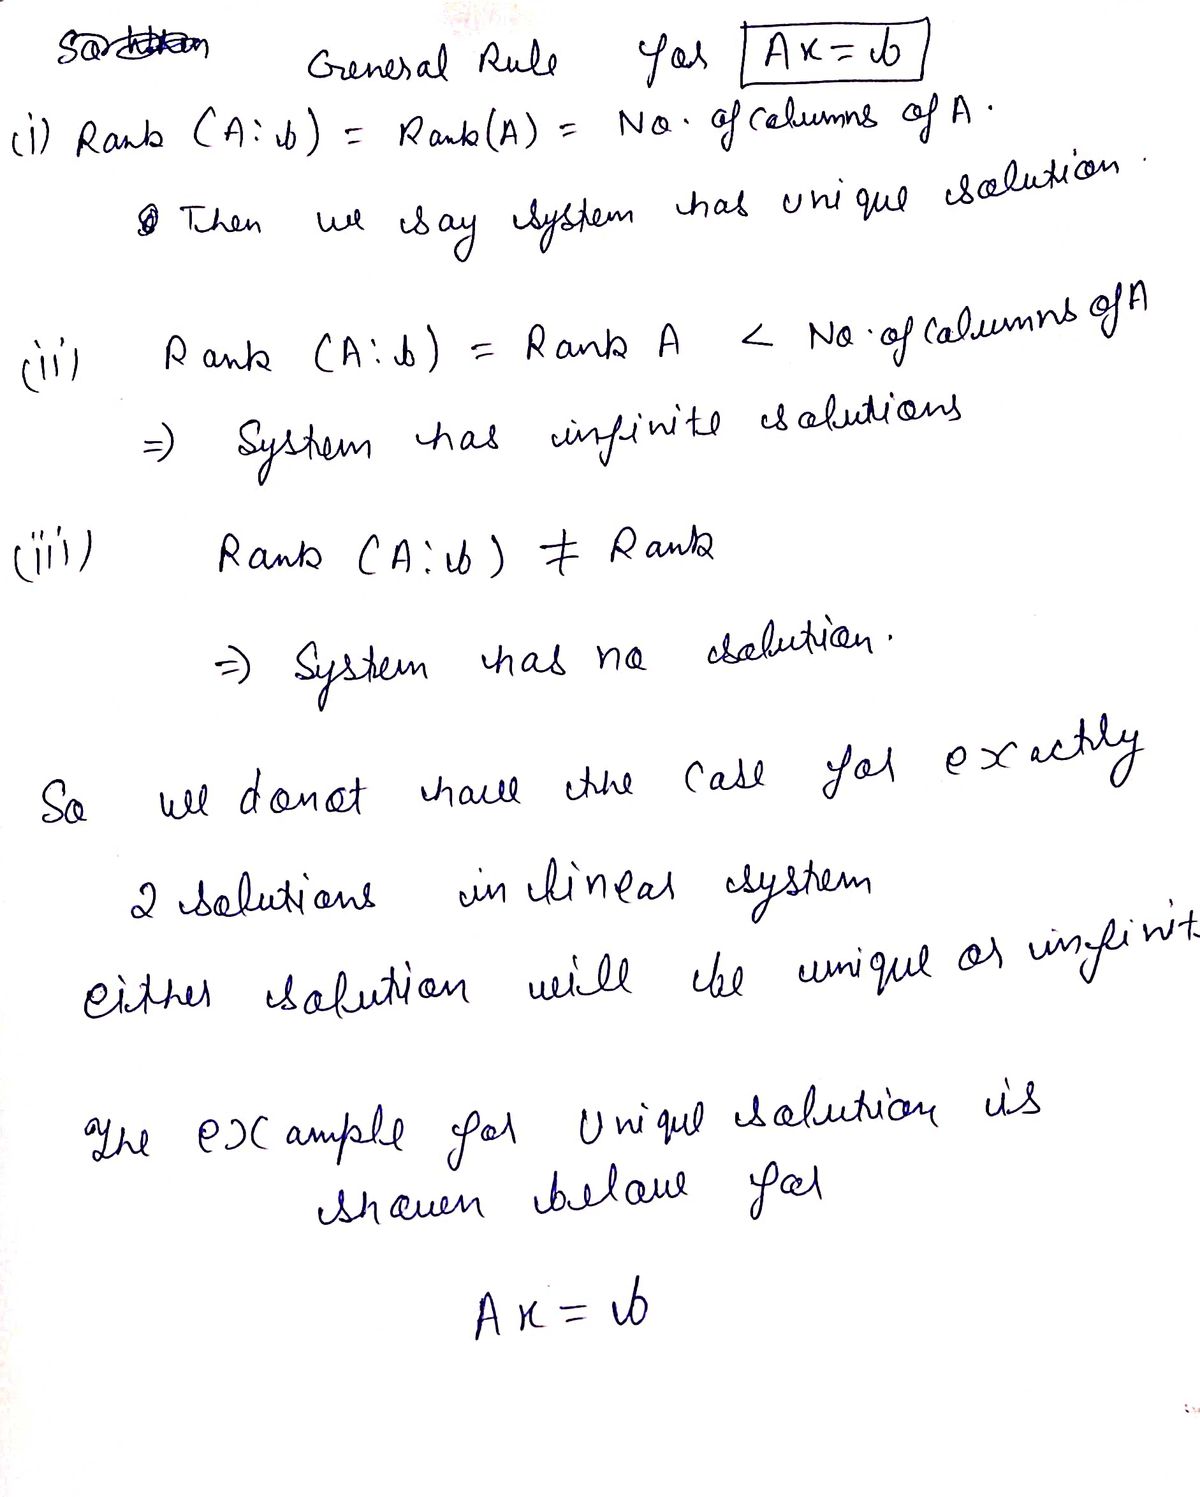 General Rule for Ax = b
(i) Rank (A:b) = Rank(A) = No. of Columns of A.
Then we say system has unique solution.
(ii) Rank (A:b) = Rank A < No. of Columns of A
=> System has infinite solutions
(iii) Rank (A:b) ≠ Rank
=> System has no solution.
So we donot have the case for exactly
2 solutions in linear system
either solution will be unique or infinit
The example for Unique solution is
shown below for
Ax = b